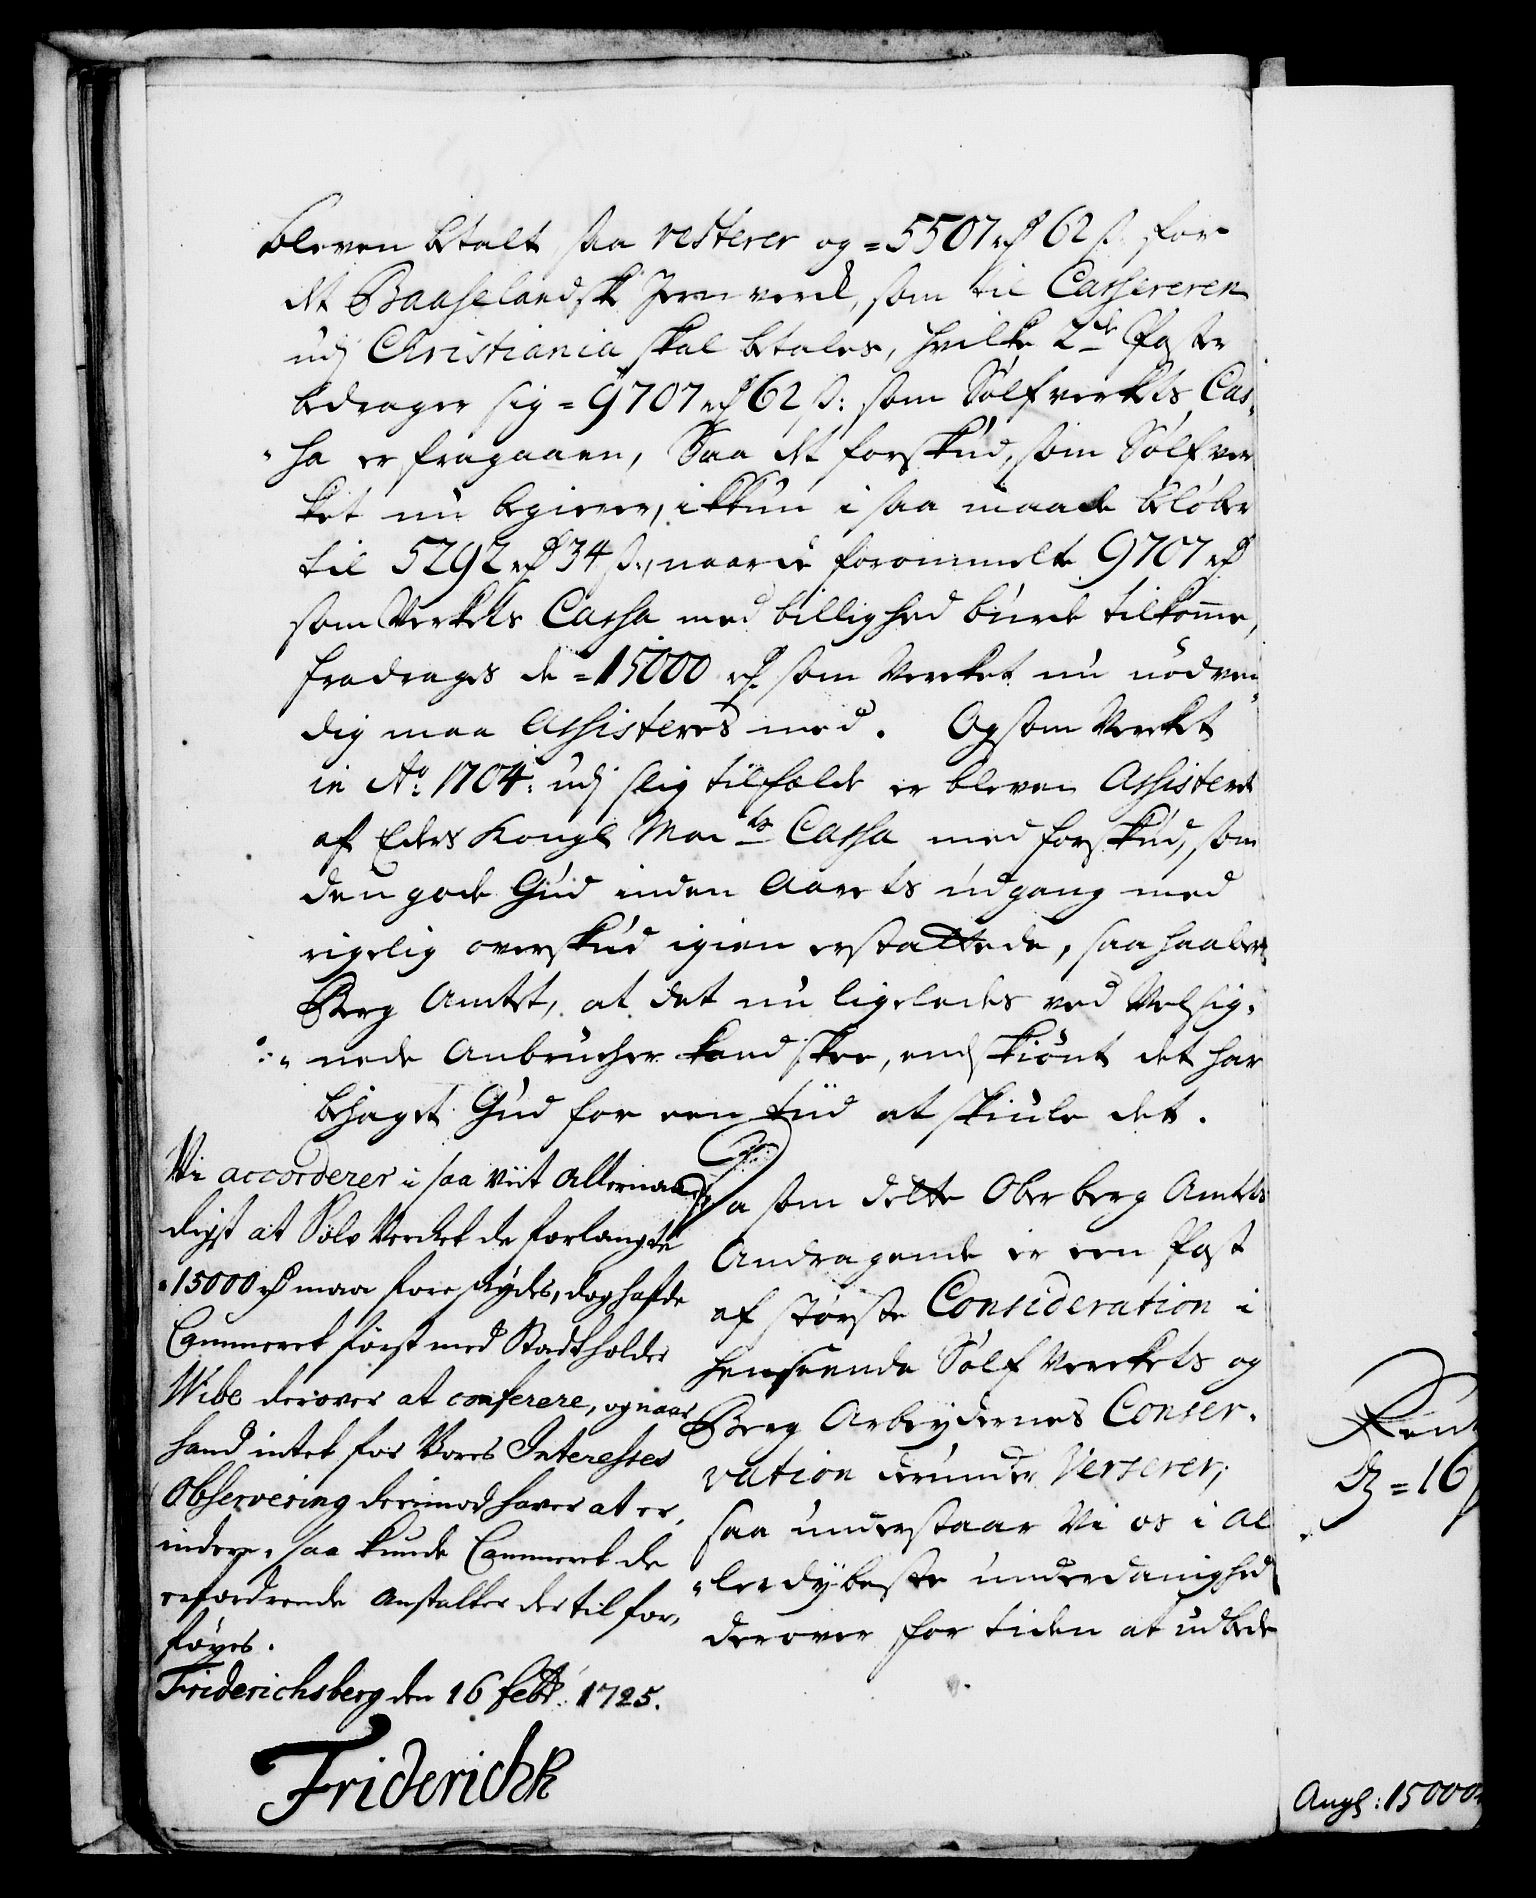 bleven betalt saa resterer og = 5507 rd 62 s: for
det Baaselandsk Jern verck, som til Cassereren
udj Christiania skal betales, hvilke 2de Poster
bedrager sig = 9707 rd 62 s: som Sølfverkets Cas-
"sa er fragaaen, Saa det forskud, som Sølfver
ket nu begierer, ikkun i saa maade beløber
til 5292 rd 34 s:, naar de forommelte 9707 rd
som Verkets Cassa med billighed burde tilkomme,
fradrages de = 15000 rd som Vercket nu nødven
dig maa Assisteres med. Og som Verket
in Ao: 1704: udj slig tilfælde er bleven Assisteret
af Eders Kongl Mai ts Cassa med forskud, som
den gode Gud inden Aarets udgang med
rigelig overskud igien erstattede, saa haaber
Berg Amtet, at det nu ligeledes ved Velsig-
"nede Anbrucher kand skee, endskiønt det har
behaget Gud for een tiid at skiule det.
Vi accorderer i saa viit Allernaa
digst at Sølv Verket de forlangte
15000 rd maa foreskydes, dog hafde
Cammeret først med Stadtholder
Wibe derover at conferere, og naar
hand intet for Vores Interesses
Observering derimod haver at er-
indre, saa kunde Cammeret de
erfordrende Anstalter dertil for-
føyes.
Friderichsberg den 16 febr: 1725.
Friderich R
Da som dette Oberberg Amtets
Andragende er een Post
af største Consideration i
henseende Sølf Verckets og
Berg Arbeydernes Conser-
vation derunder Verserer;
saa understaar Vi os i al
"lerdybeste underdanighed
derover for tiden at udbede
= 16
Angl: 15000